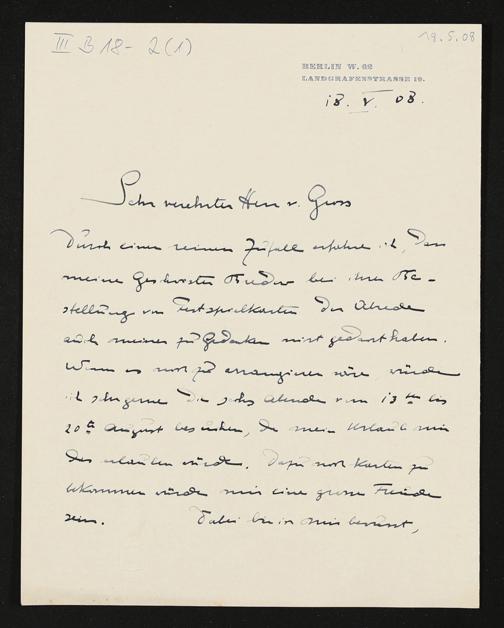 III B 18- 2(1)
19.5.08
BERLIN W. 62
LANDGRAFENSTRASSE 19.
18. V. 08.
Sehr verehrter Herr v. Gross
Durch einen reinen Zufall erfahre ich, dass
meine bei ihrer Be-
stellung von Festspielkarten der Abrede
auch meiner zu Gedenken nicht gedacht haben.
Wenn es noch zu arrangieren wäre, würde
ich sehr gerne die sechs Abende vom 13ten bis
20ten August besuchen, da mein Urlaub mir
das erlauben würde. Dazu noch Karten zu
bekommen würde mir eine grosse Freude
sein. Dabei bin ich mir bewusst,